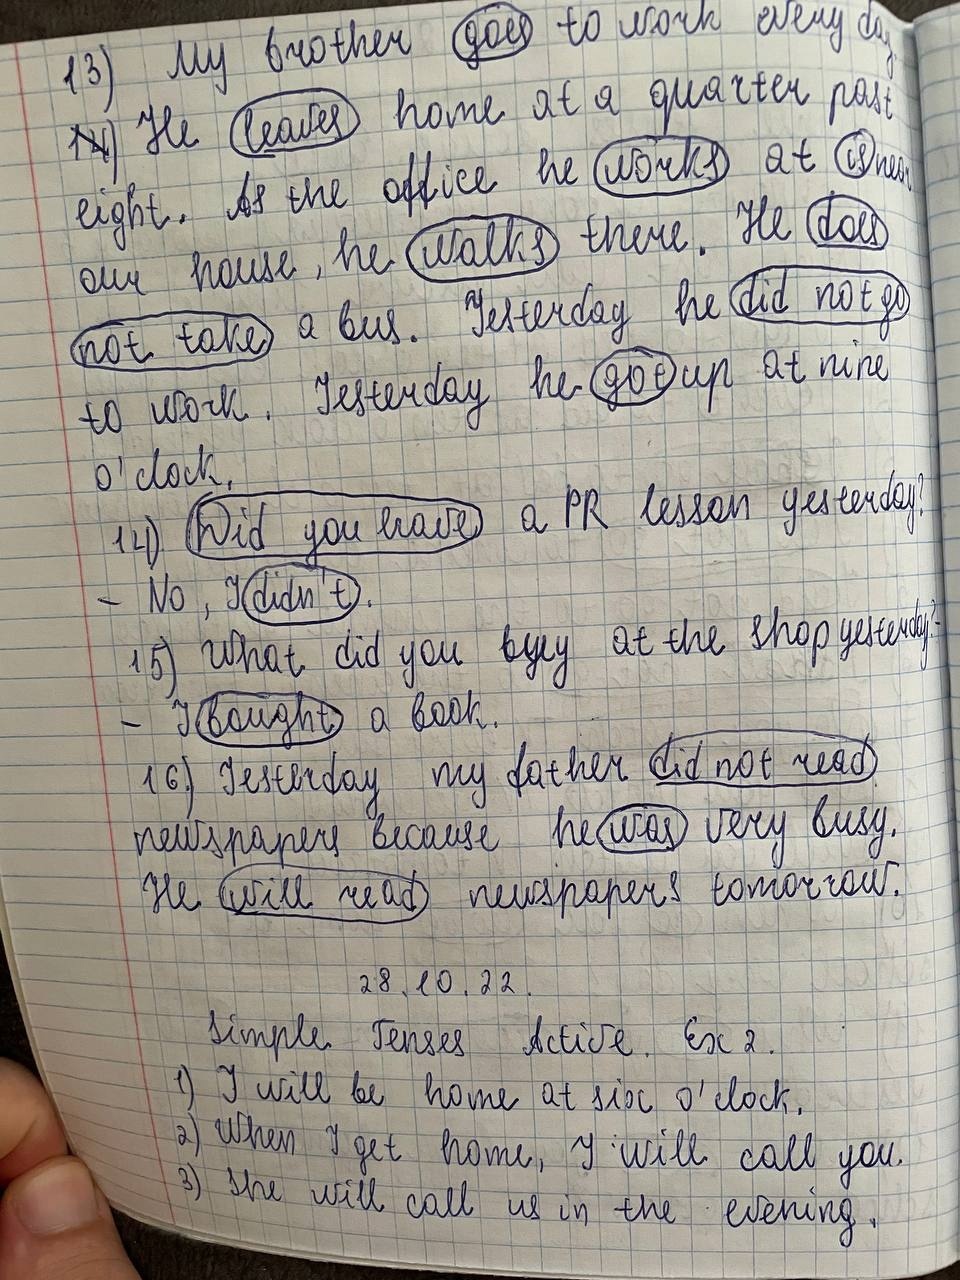 13) My brother goes to work every day.
14) He leaves home at a quarter past
eight. As the office he works at is near
our house, he walks there. He does
not take a bus. Yesterday he did not go
to work. Yesterday he got up at nine
o'clock.
14) Did you have a PR lesson yesterday?
- No, I didn't.
15) What did you buy at the shop yesterday?
- I bought a book.
16) Yesterday my father did not read
newspapers because he was very busy.
He will read newspapers tomorrow.
28.10.22.
Simple Tenses Active. Ex 2.
1) I will be home at six o'clock.
2) When I get home, I will call you.
3) She will call us in the evening.